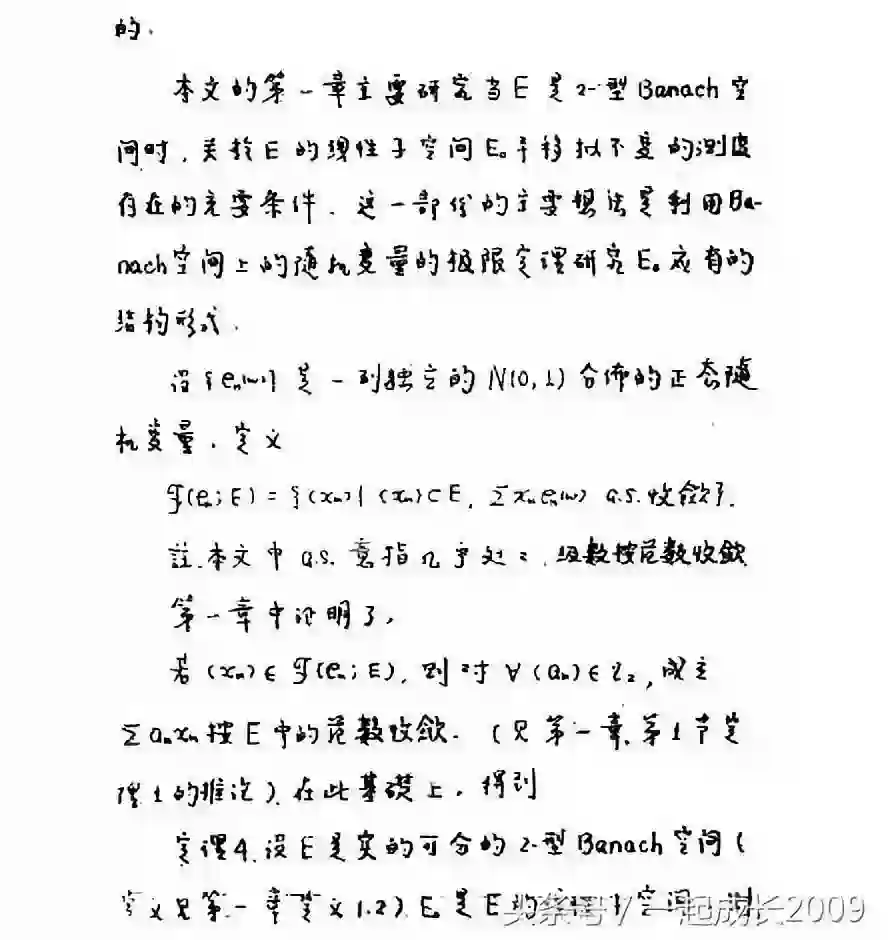 的.
本文的第一章主要研究当E是2-型Banach空
间时,关于E的线性子空间E₀平移拟不变的测度
存在的充要条件.这一部份的主要想法是利用Ba-
nach空间上的随机变量的极限定理研究E₀应有的
结构形式.
设{eₙ(ω)}是一列独立的N(0,1)分佈的正态随
机变量.定义
𝓕(eₙ;E)={(xₙ)|(xₙ)⊂E, Σxₙeₙ(ω) a.s.收敛}.
註.本文中a.s.意指几乎处处.级数按范数收敛
第一章中证明了,
若(xₙ)∈𝓕(eₙ;E),则对∀(aₙ)∈l₂,成立
Σaₙxₙ按E中的范数收敛.(见第一章,第1节定
理1的推论).在此基礎上,得到
定理4.设E是实的可分的2-型Banach空间(
定义见第一章定义1.2)E₀是E的线性子空间,则
头条号/一起成长2009